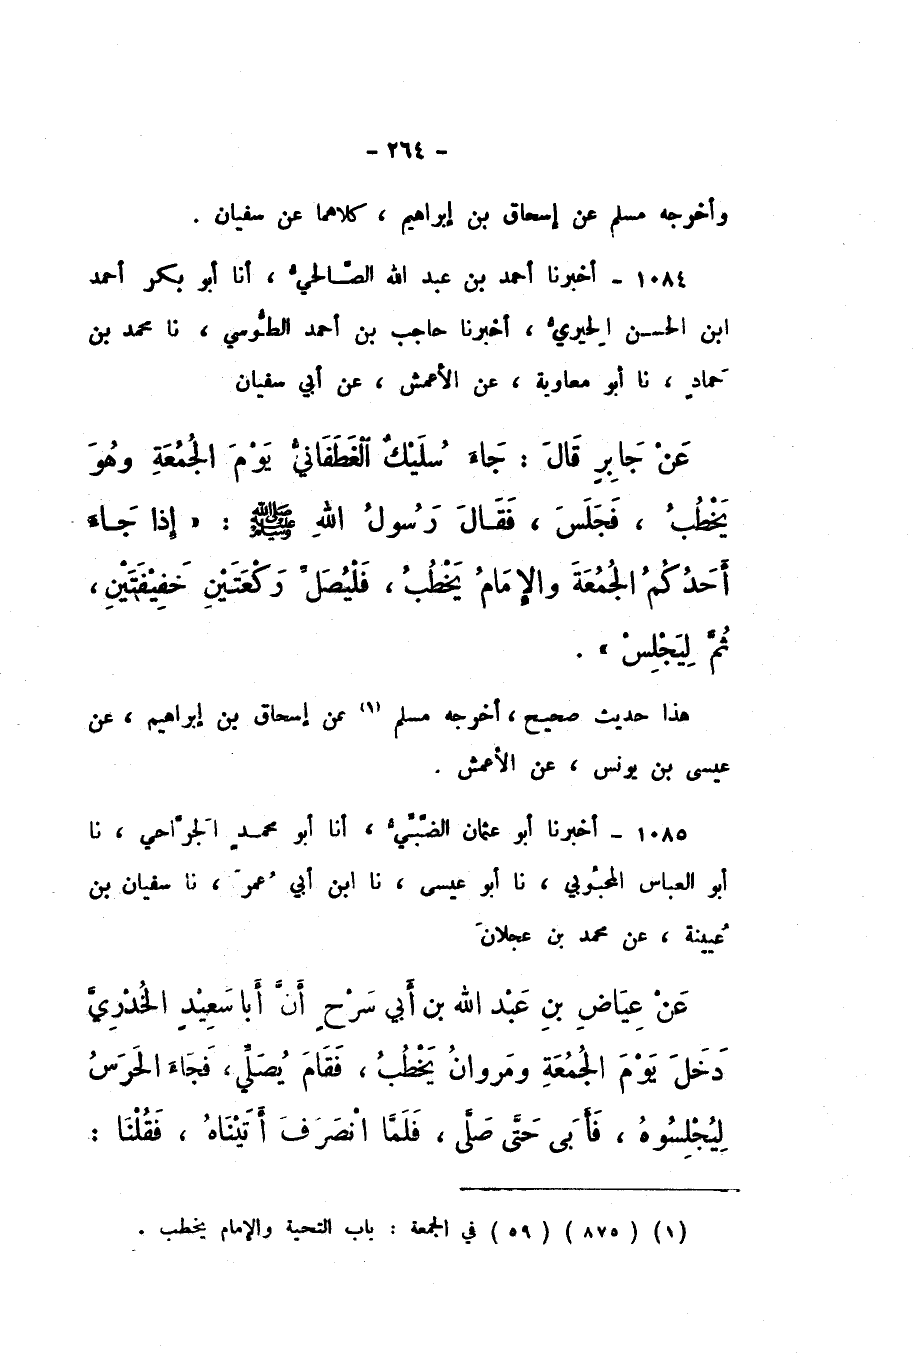 - ٢٦٤ -
وأخرجه مسلم عن إسحاق بن إبراهيم ، كلاهما عن سفيان .
١٠٨٤ - أخبرنا أحمد بن عبد الله الصَّالحيُّ ، أنا أبو بكر أحمد
ابن الحسن الحِيريُّ ، أخبرنا حاجب بن أحمد الطُّوسي ، نا محمد بن
حَمادٍ ، نا أبو معاوية ، عن الأعمش ، عن أبي سفيان
عَنْ جَابِرٍ قَالَ : جَاءَ سُلَيْكٌ الْغَطَفَانيُّ يَوْمَ الجُمُعَةِ وهُوَ
يَخْطُبُ ، فَجَلَسَ ، فَقَالَ رَسُولُ اللهِ ﷺ : « إذا جَاءَ
أَحَدُكُمُ الجُمُعَةَ والإمَامُ يَخْطُبُ ، فَلْيُصَلِّ رَكْعَتَيْنِ خَفِيْفَتَيْنِ ،
ثُمَّ لِيَجْلِسْ » .
هذا حديث صحيح ، أخرجه مسلم (١) عن إسحاق بن إبراهيم ، عن
عيسى بن يونس ، عن الأعمش .
١٠٨٥ - أخبرنا أبو عثمان الضَّبِّيُّ ، أنا أبو محمدٍ الجَرَّاحي ، نا
أبو العباس المحبُوبي ، نا أبو عيسى ، نا ابن أبي عُمرَ ، نا سفيان بن
عُيينة ، عن محمد بن عجلانَ
عَنْ عِيَاضِ بنِ عَبْد الله بن أَبي سَرْحٍ أَنَّ أَبا سَعِيْدٍ الخُدْرِيَّ
دَخَلَ يَوْمَ الجُمُعَةِ ومَروانُ يَخْطُبُ ، فَقَامَ يُصَلِّي ، فَجَاءَ الحَرَسُ
لِيُجْلِسُوهُ ، فَأَبى حَتَّى صَلَّى ، فَلَمَّا انْصَرَفَ أَتَيْنَاهُ ، فَقُلْنَا :
(١) ( ٨٧٥ ) ( ٥٩ ) في الجمعة : باب التحية والإمام يخطب .